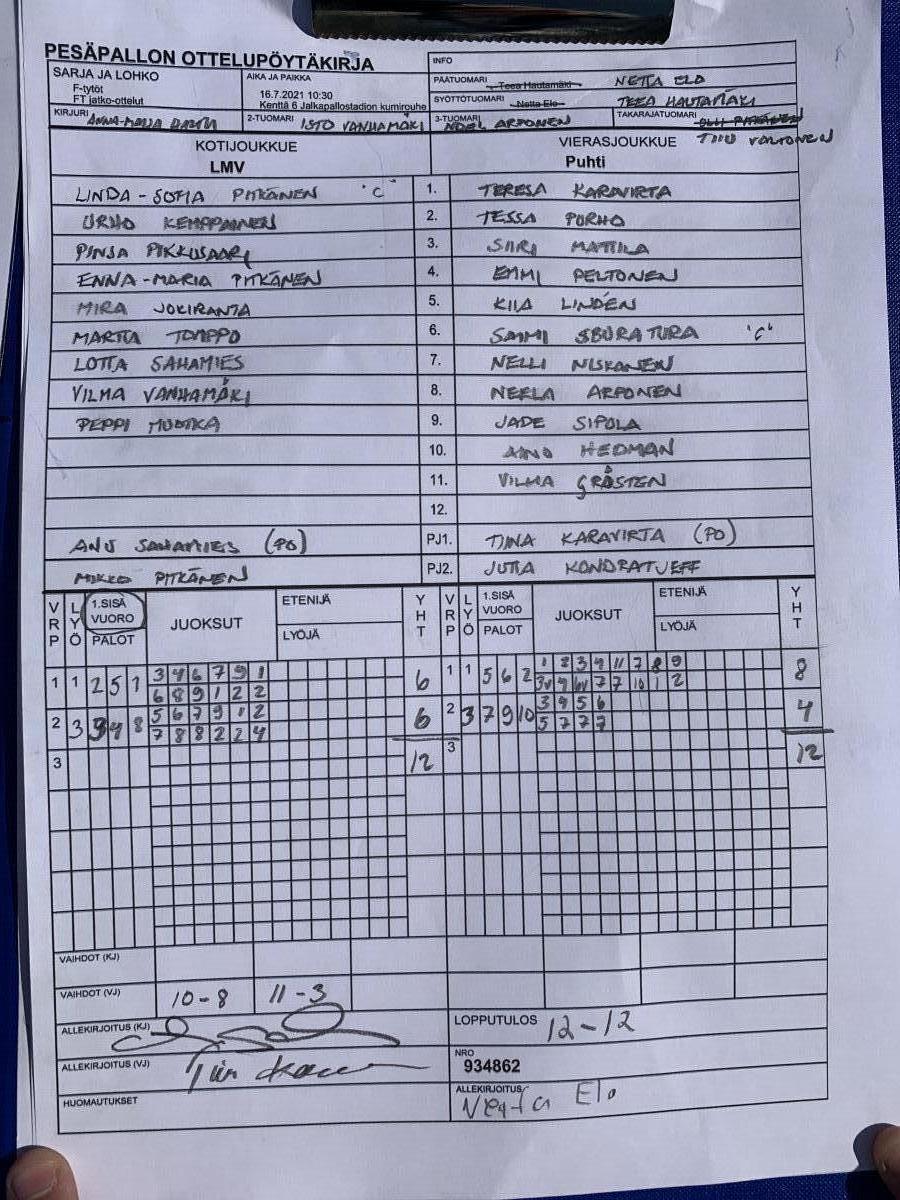 PESÄPALLON OTTELUPÖYTÄKIRJA
INFO
SARJA JA LOHKO
F-tytöt
FT jatko-ottelut
AIKA JA PAIKKA
16.7.2021 10:30
Kenttä 6 Jalkapallostadion kumirouhe
PÄÄTUOMARI Teea Hautamäki NETTA ELO
SYÖTTÖTUOMARI Netta Elo TEEA HAUTAMÄKI
KIRJURI ANNA-MAIJA
2-TUOMARI ISTO VANHAMÄKI
3-TUOMARI NOEL ARPONEN
TAKARAJATUOMARI OLLI PITKÄNEN
TIMO VALTONEN
KOTIJOUKKUE
LMV
VIERASJOUKKUE
Puhti
LINDA-SOFIA PITKÄNEN "C" 1. TERESA KARAVIRTA
URHO KEMPPAINEN 2. TESSA PORHO
PINSA PIKKUSAARI 3. SIIRI MATTILA
ENNA-MARIA PITKÄNEN 4. EMMI PELTONEN
MIRA JOKIRANTA 5. KIIA LINDÉN
MARTTA TOMPPO 6. SAIMI SBURATURA "C"
LOTTA SAHAMIES 7. NELLI NISKANEN
VILMA VANHAMÄKI 8. NEELA ARPONEN
PEPPI MUOTKA 9. JADE SIPOLA
10. AINO HEDMAN
11. VILMA GRÅSTEN
12.
ANU SAHAMIES (PO) PJ1. TIINA KARAVIRTA (PO)
MIKKO PITKÄNEN PJ2. JUTTA KONDRATJEFF
VRP LYÖ 1.SISÄ VUORO PALOT JUOKSUT ETENIJÄ LYÖJÄ YHT VRP LYÖ 1.SISÄ VUORO PALOT JUOKSUT ETENIJÄ LYÖJÄ YHT
1 1 2 5 1 3 4 6 7 9 1 6 1 1 5 6 2 1 2 3 9 11 7 8 9 8
6 8 9 1 2 2 3v 9 6v 7 7 10 1 2
2 3 3 4 8 5 6 7 9 1 2 6 2 3 7 9 10 3 4 5 6 4
7 8 8 2 2 4 5 7 7 7
3 12 3 12
VAIHDOT (KJ)
VAIHDOT (VJ) 10-8 11-3
ALLEKIRJOITUS (KJ)
LOPPUTULOS 12-12
ALLEKIRJOITUS (VJ)
NRO
934862
HUOMAUTUKSET
ALLEKIRJOITUS
Neeta Elo